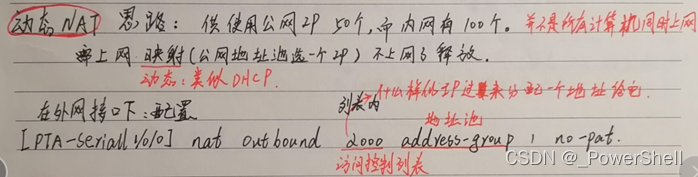 动态NAT 思路: 供使用公网IP 50个,而内网有100个。并不是所有计算机同时上网
上网 映射(公网地址池选一个IP) 不上网了释放。
动态:类似DHCP.
什么样的IP过来分配一个地址给它.
在外网接口下:配置 列表内 地址池
[PTA-Serial1/0/0] nat outbound 2000 address-group 1 no-pat.
访问控制列表
CSDN @_PowerShell